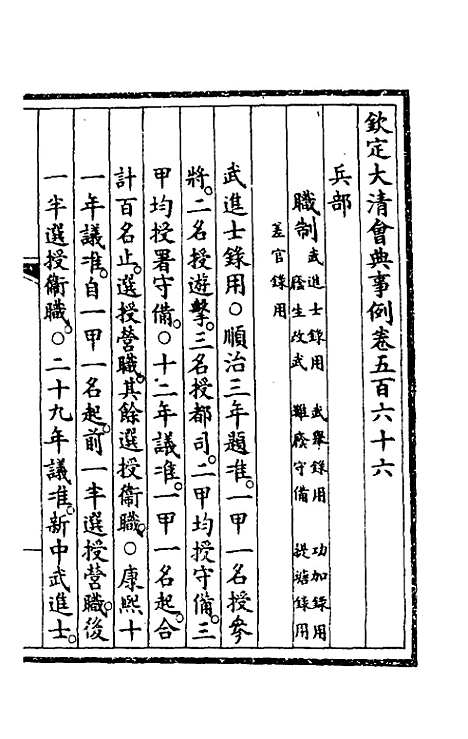 欽定大清會典事例卷五百六十六
兵部
職制武進士錄用 武舉錄用 功加錄用
廕生改武 難廕守備 提塘錄用
差官錄用
武進士錄用○順治三年題准。一甲一名授參
將。二名授遊擊。三名授都司。二甲均授守備。三
甲均授署守備。○十二年議准。一甲一名起。合
計百名止。選授營職。其餘選授衞職。○康熙十
一年議准。自一甲一名起。前一半選授營職。後
一半選授衞職。○二十九年議准。新中武進士。